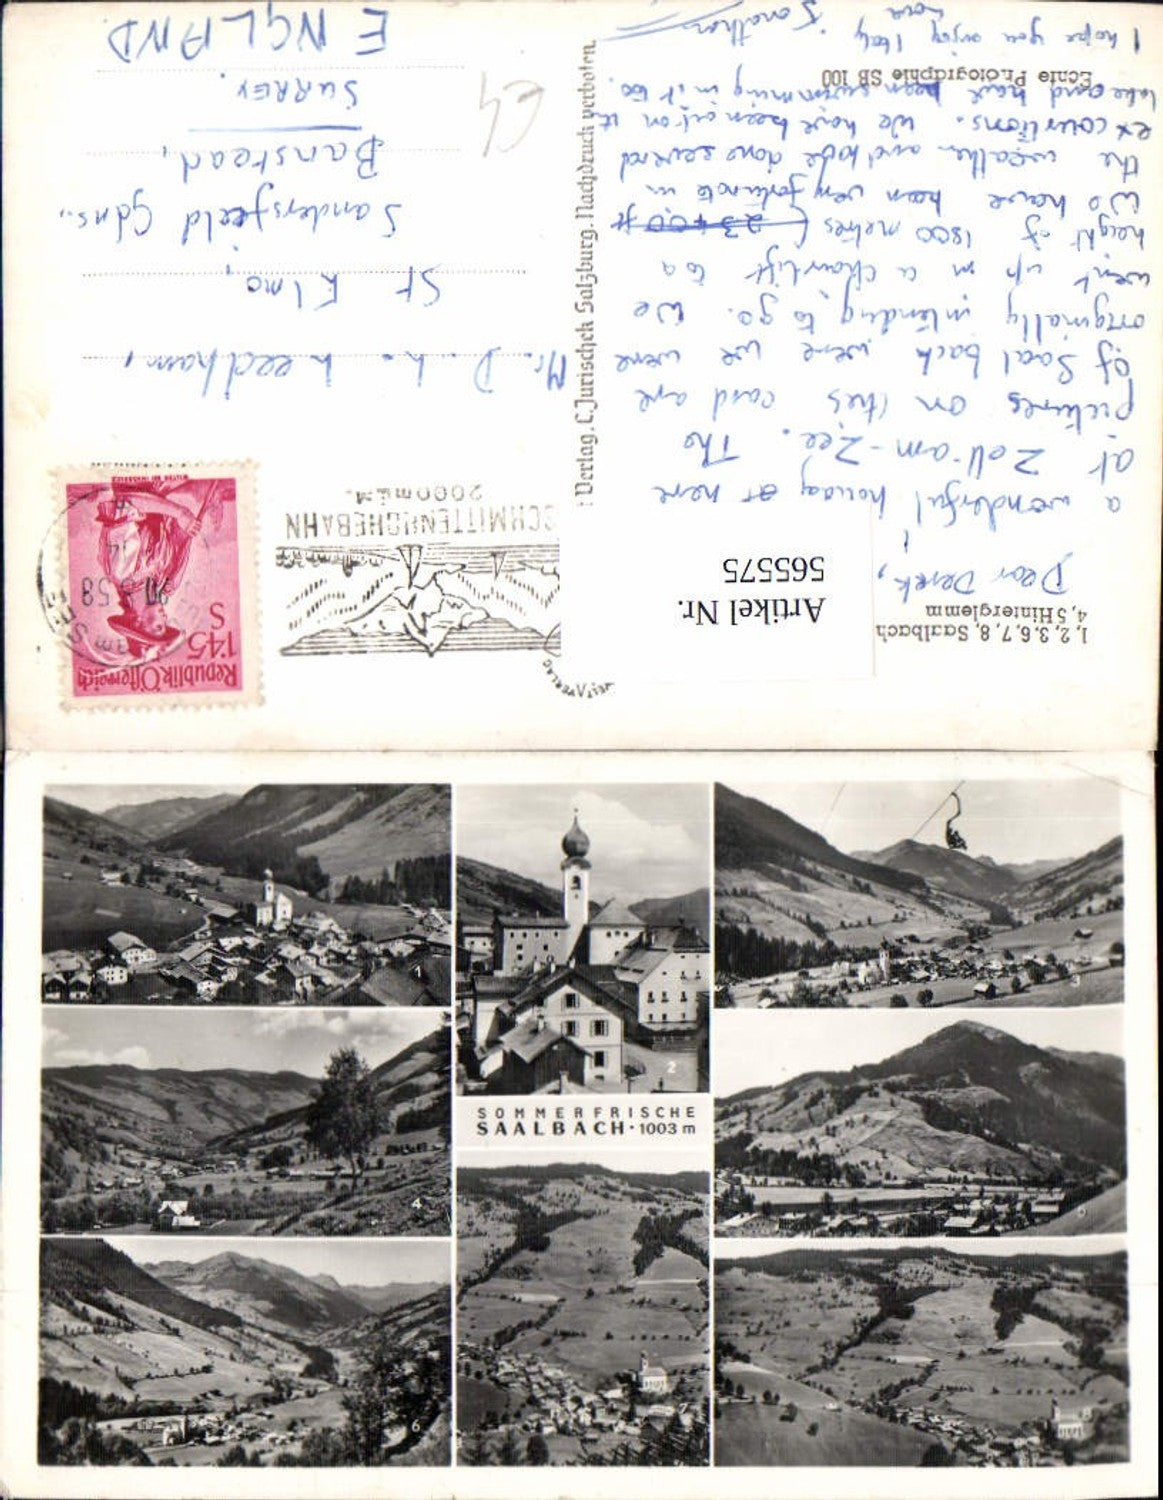 1, 2, 3, 6, 7, 8, Saalbach
4, 5 Hinterglemm
Dear Derek,
a wonderful holiday at here
at Zell-am-Zee. The
pictures on this card are
of Saalbach were we were
originally intending to go. We
went up in a chairlift to a
height of 1800 metres
We have been very fortunate in
the weather and have done several
excourtions. We have been out on it
lake and have been swimming in it too.
Echte Photographie SB 100
I hope you enjoy Italy
Jonathan
Artikel Nr.
565575
Verlag. C. Jurischek Salzburg. Nachdruck verboten.
SCHMITTENHÖHEBAHN
2000 m ü. M.
Republik Österreich
1'45
S
58
Mr. D. L. Needham,
St Elmo,
Sandersfield Gdns.,
Banstead,
SURREY.
ENGLAND.
1
2
3
SOMMERFRISCHE
SAALBACH · 1003 m
4
6
7
8